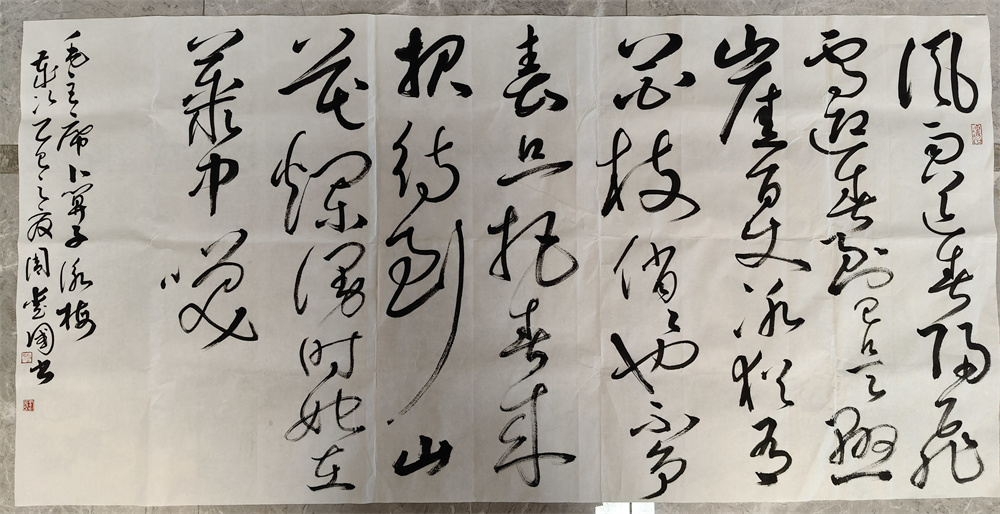 风雨送春归飞
雪迎春到已是悬
崖百丈冰犹有
花枝俏俏也不争
春只把春来
报待到山
花烂漫时她在
丛中笑
毛主席卜算子咏梅
岁次乙巳之夏周国书